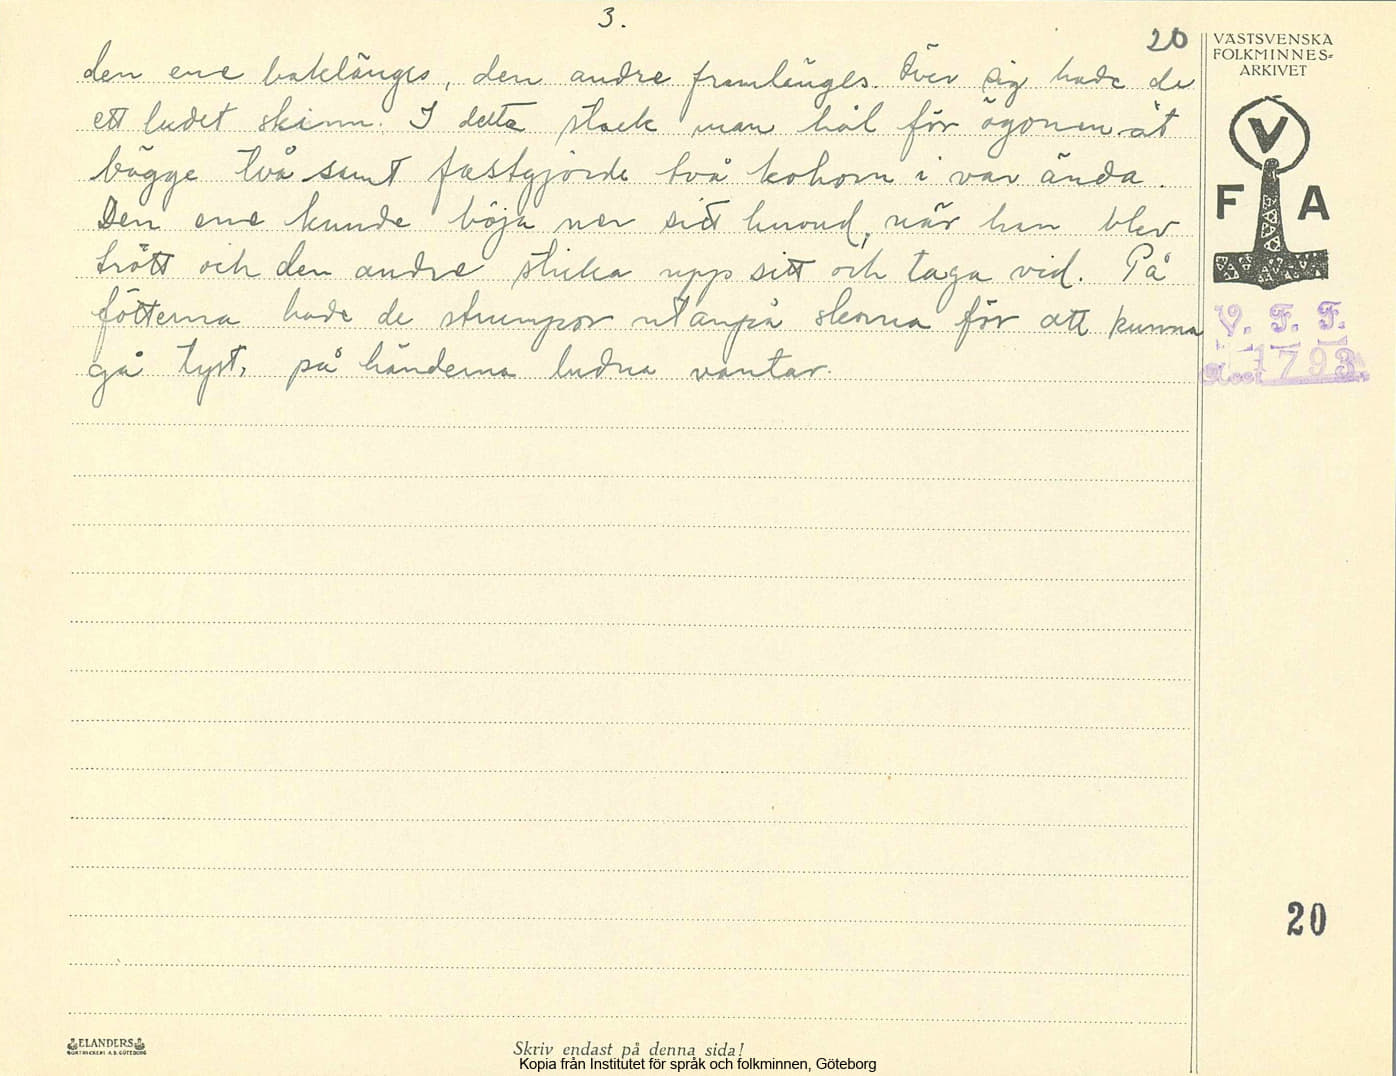 3.
20
den ene baklänges, den andre framlänges. Över sig hade de
ett ludet skinn. I detta stack man hål för ögonen åt
bägge två samt fastgjorde två kohorn i var ända.
Den ene kunde böja ner sitt huvud, när han blev
trött och den andre sticka upp sitt och taga vid. På
fötterna hade de strumpor utanpå skorna för att kunna
gå tyst, på händerna ludna vantar.
VÄSTSVENSKA
FOLKMINNES=
ARKIVET
V
F A
V. F. F.
1793
20
ELANDERS
BOKTRYCKERI A.B. GÖTEBORG
Skriv endast på denna sida!
Kopia från Institutet för språk och folkminnen, Göteborg